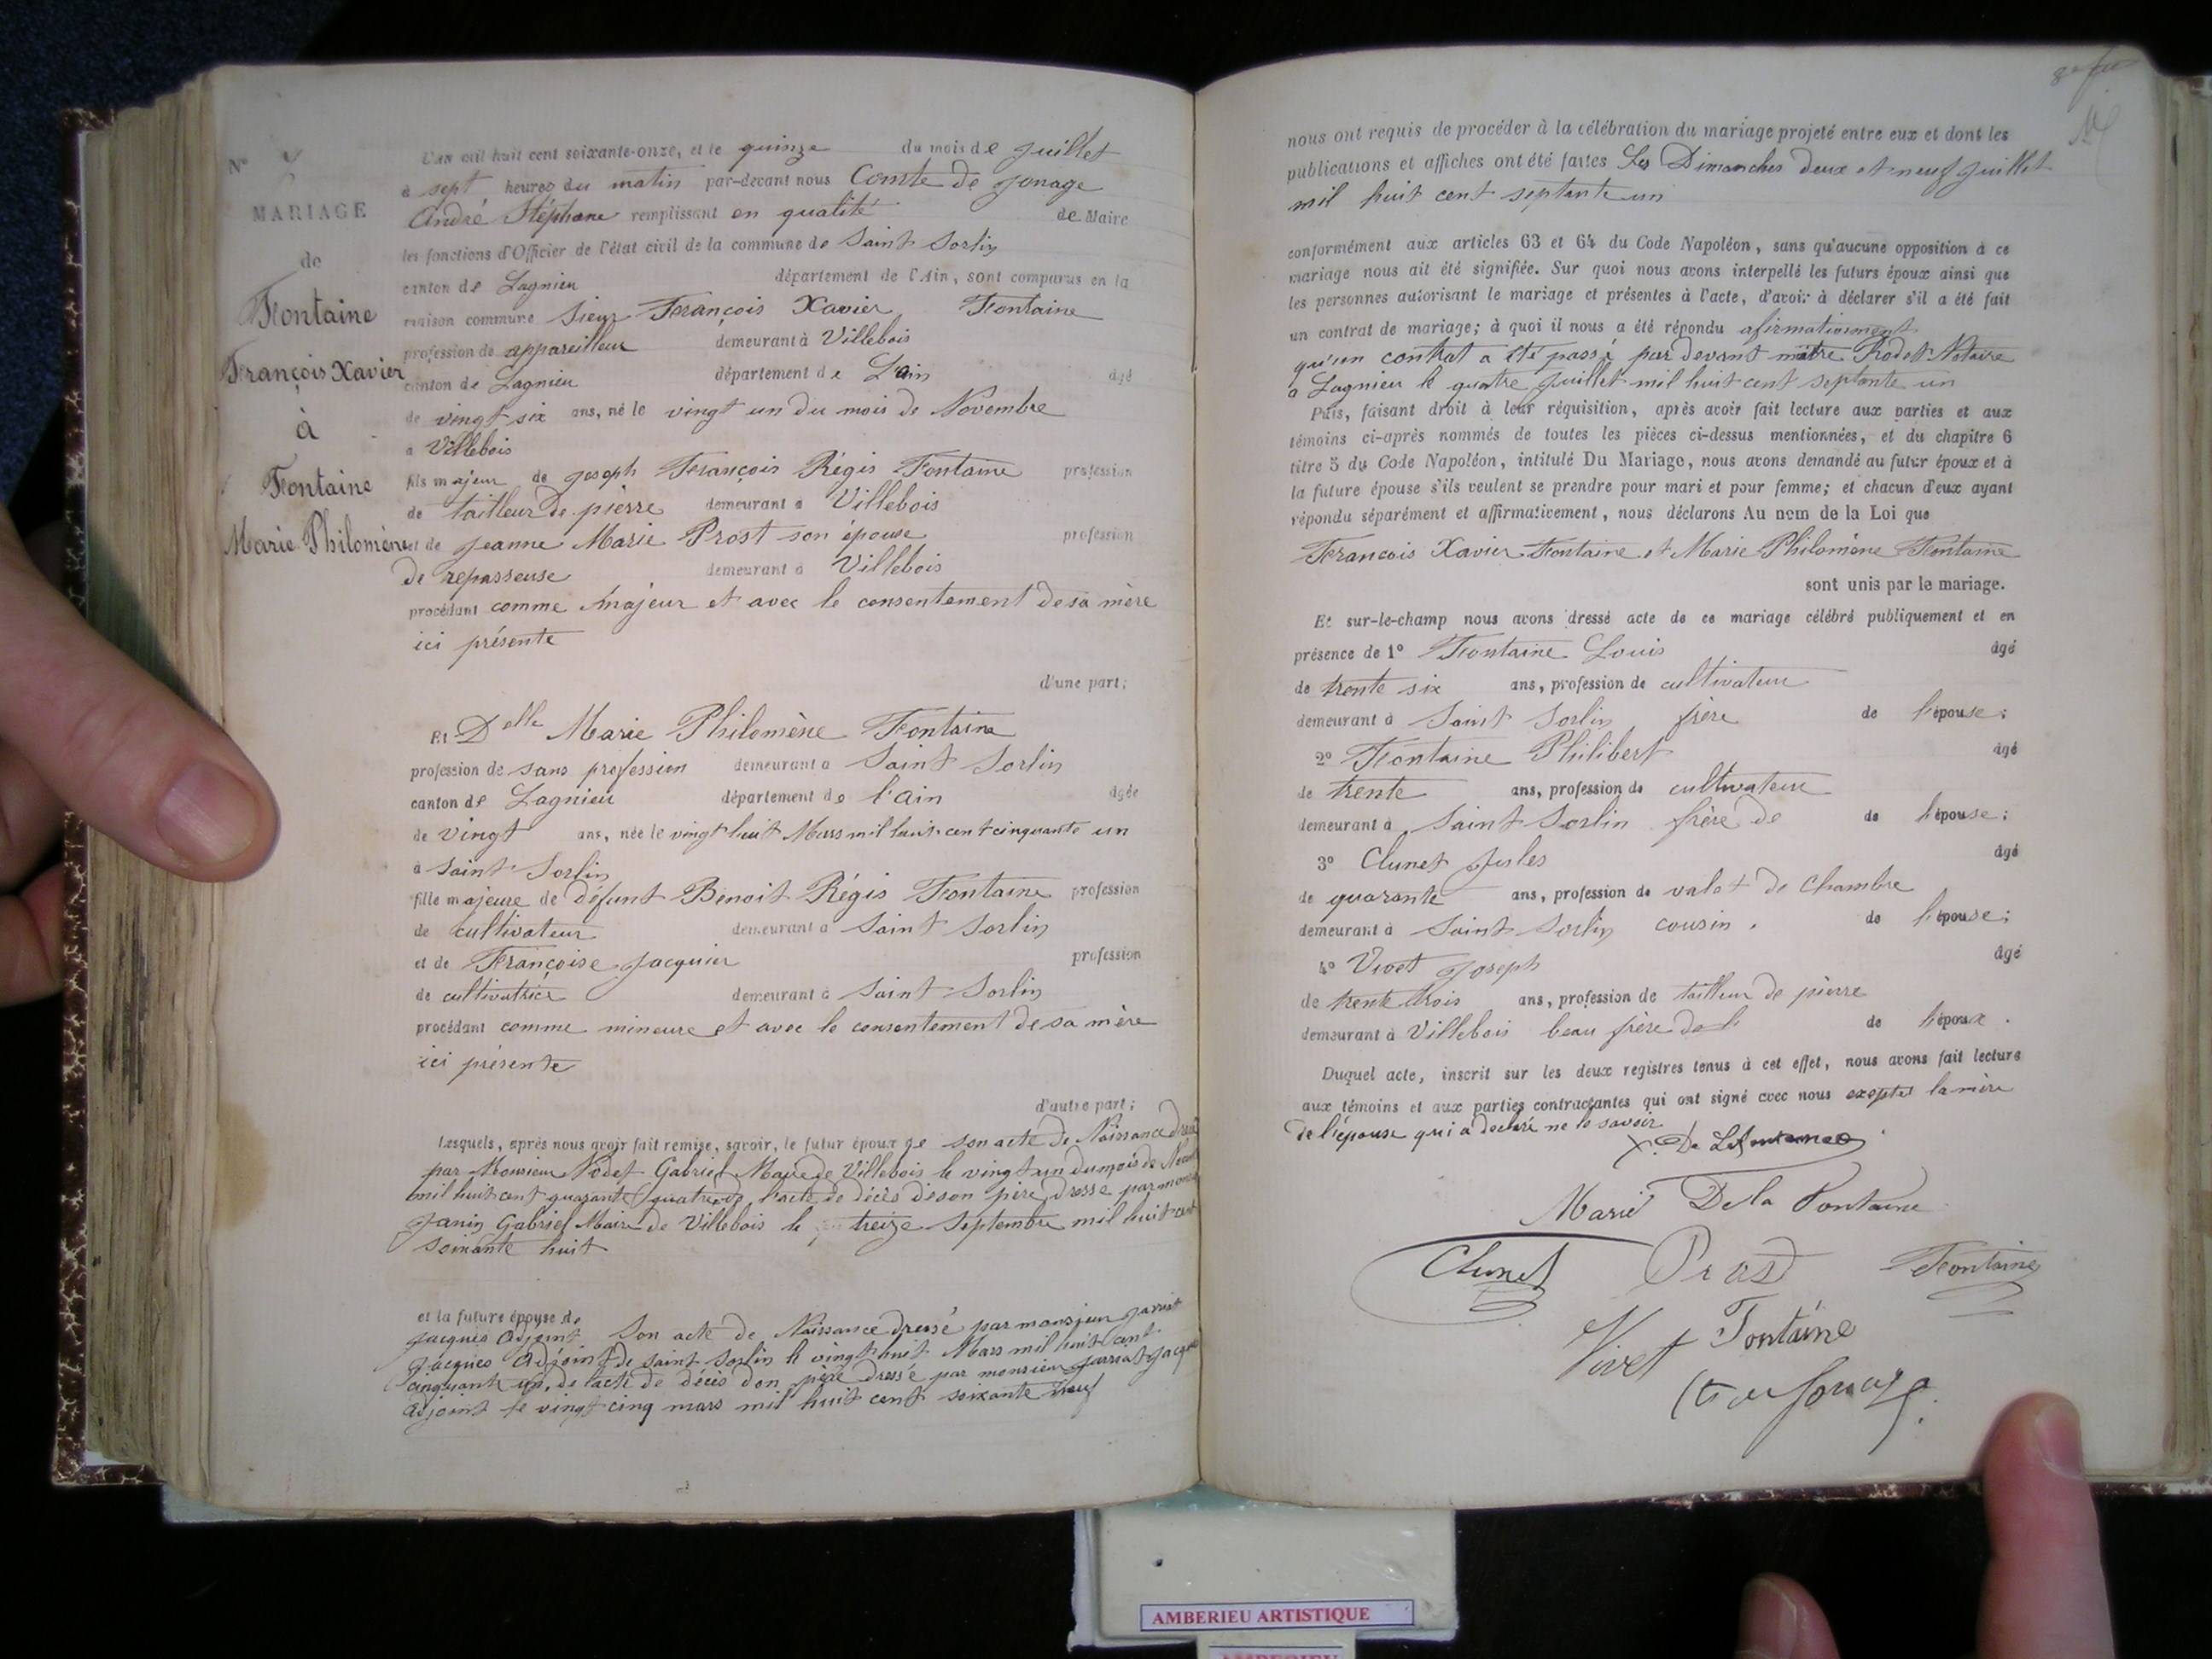 Nº
MARIAGE
de
Fontaine
François Xavier
à
Fontaine
Marie Philomène
L'an mil huit cent soixante-onze, et le quinze du mois de Juillet
à sept heures du matin par-devant nous Comte de Jonage
André Stéphane remplissant en qualité de Maire
les fonctions d'Officier de l'état civil de la commune de Saint Sorlin
canton de Lagnieu département de l'Ain, sont comparus en la
maison commune Sieur François Xavier Fontaine
profession de appareilleur demeurant à Villebois
canton de Lagnieu département de L'ain âgé
de vingt six ans, né le vingt un du mois de Novembre
à Villebois
fils majeur de Joseph François Régis Fontaine profession
de tailleur de pierre demeurant à Villebois
et de Jeanne Marie Prost son épouse profession
de repasseuse demeurant à Villebois
procédant comme majeur et avec le consentement de sa mère
ici présente
d'une part;
Et Delle Marie Philomène Fontaine
profession de sans profession demeurant à Saint Sorlin
canton de Lagnieu département de l'ain âgée
de vingt ans, née le vingt huit Mars mil huit cent cinquante un
à Saint Sorlin
fille majeure de défunt Benoit Régis Fontaine profession
de cultivateur demeurant à Saint Sorlin
et de Françoise Jacquier profession
de cultivatrice demeurant à Saint Sorlin
procédant comme mineure et avec le consentement de sa mère
ici présente
d'autre part;
Lesquels, après nous avoir fait remise, savoir, le futur époux de son acte de Naissance dressé
par Monsieur Rodet Gabriel Maire de Villebois le vingt un du mois de
mil huit cent quarante quatre de l'acte de décès de son père dressé par
Janin Gabriel Maire de Villebois le treize Septembre mil huit cent
soixante huit
et la future épouse de
Jacques Adjoint Son acte de Naissance dressé par monsieur
Jacques Adjoint de Saint Sorlin le vingt huit Mars mil huit cent
cinquante un, de l'acte de décès d'on père dressé par monsieur Jarriat
adjoint le vingt cinq mars mil huit cent soixante neuf
nous ont requis de procéder à la célébration du mariage projeté entre eux et dont les
publications et affiches ont été faites Les Dimanches deux et neuf Juillet
mil huit cent septante un
conformément aux articles 63 et 64 du Code Napoléon, sans qu'aucune opposition à ce
mariage nous ait été signifiée. Sur quoi nous avons interpellé les futurs époux ainsi que
les personnes autorisant le mariage et présentes à l'acte, d'avoir à déclarer s'il a été fait
un contrat de mariage; à quoi il nous a été répondu
qu'un contrat a été passé par devant maitre Rodet Notaire
à Lagnieu le quatre Juillet mil huit cent septante un
Puis, faisant droit à leur réquisition, après avoir fait lecture aux parties et aux
témoins ci-après nommés de toutes les pièces ci-dessus mentionnées, et du chapitre 6
titre 5 du Code Napoléon, intitulé Du Mariage, nous avons demandé au futur époux et à
la future épouse s'ils veulent se prendre pour mari et pour femme; et chacun d'eux ayant
répondu séparément et affirmativement, nous déclarons Au nom de la Loi que
François Xavier Fontaine et Marie Philomène Fontaine
sont unis par le mariage.
Et sur-le-champ nous avons dressé acte de ce mariage célébré publiquement et en
présence de 1º Fontaine Louis âgé
de trente six ans, profession de cultivateur
demeurant à Saint Sorlin frère de l'épouse;
2º Fontaine Philibert âgé
de trente ans, profession de cultivateur
demeurant à Saint Sorlin frère de de l'épouse;
3º Clunet Jules âgé
de quarante ans, profession de valet de Chambre
demeurant à Saint Sorlin cousin de l'épouse;
4º Vivet Joseph âgé
de trente trois ans, profession de tailleur de pierre
demeurant à Villebois beau frère de l' de l'époux.
Duquel acte, inscrit sur les deux registres tenus à cet effet, nous avons fait lecture
aux témoins et aux parties contractantes qui ont signé avec nous exeptés la mère
de l'épouse qui a declaré ne le savoir
Marie De la Fontaine
Clunet Prost Fontaine
Vivet Fontaine
AMBERIEU ARTISTIQUE